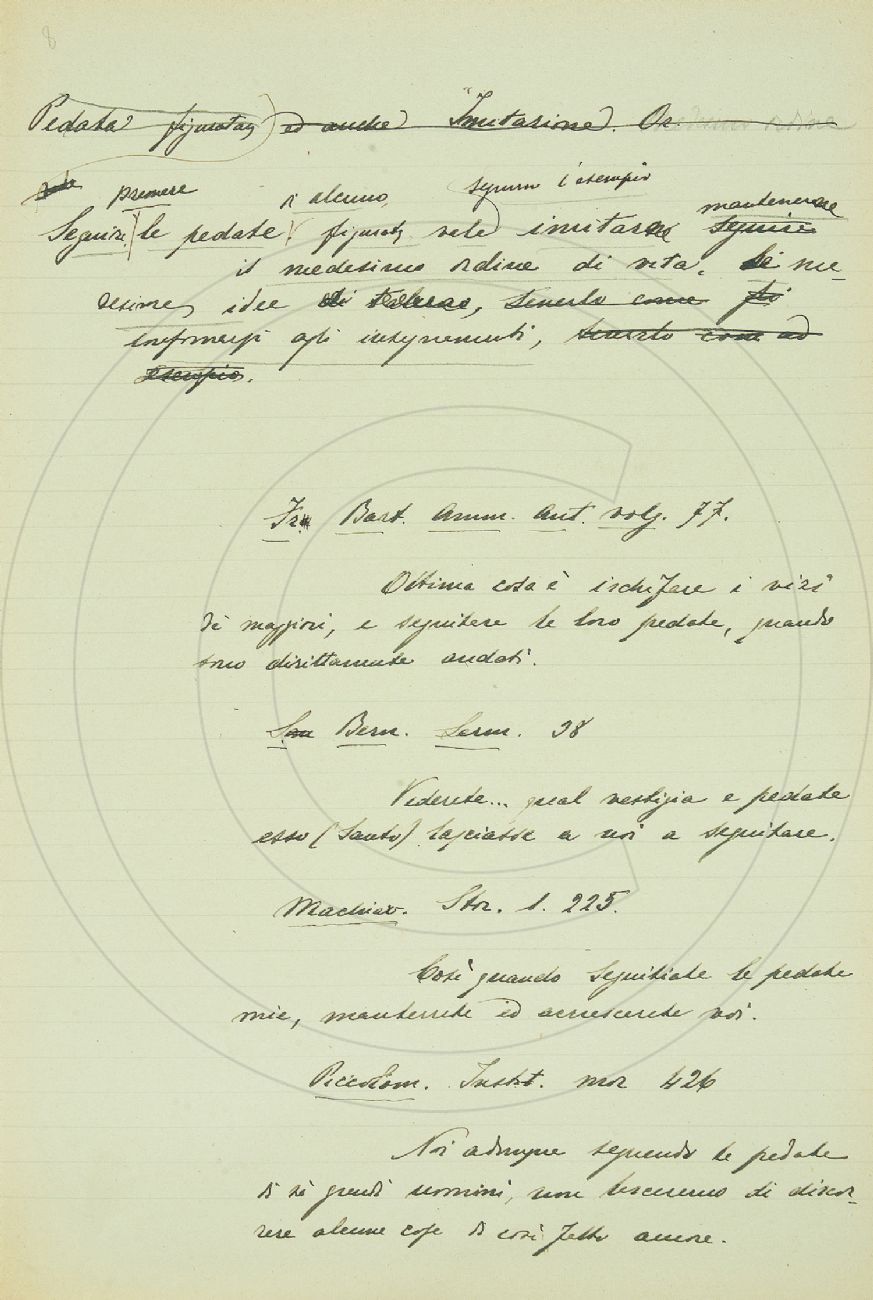 8
Pedata figuratay ed anche "Imitazione. Or. medesimo ordine
premere di alcuno, seguirne l'esempio
Seguire le pedate figuraty vale imitarne mantenerne seguire
il medesimo ordine di vita, le me-
desime idee di, tenerlo come
conformarsi agli insegnamenti, tenerlo come ad
esempio.
Fr. Bart. Amm. Ant. volg. 77.
Ottima cosa è ischifare i vizi
di maggiori, e seguitare le loro pedate, quando
sono dirittamente andati.
San Bern. Serm. 38
Vederete... qual vestigia e pedate
esso (Santo) lasciasse a noi a seguitare.
Machiav. Stor. 1. 225.
Così quando seguitiate le pedate
mie, manterrete ed accrescerete voi.
Piccolom. Instit. mor 426
Noi adunque seguendo le pedate
di sì grandi uomini, non lasceremo di discor-
rere alcune cose di così fatto amore.